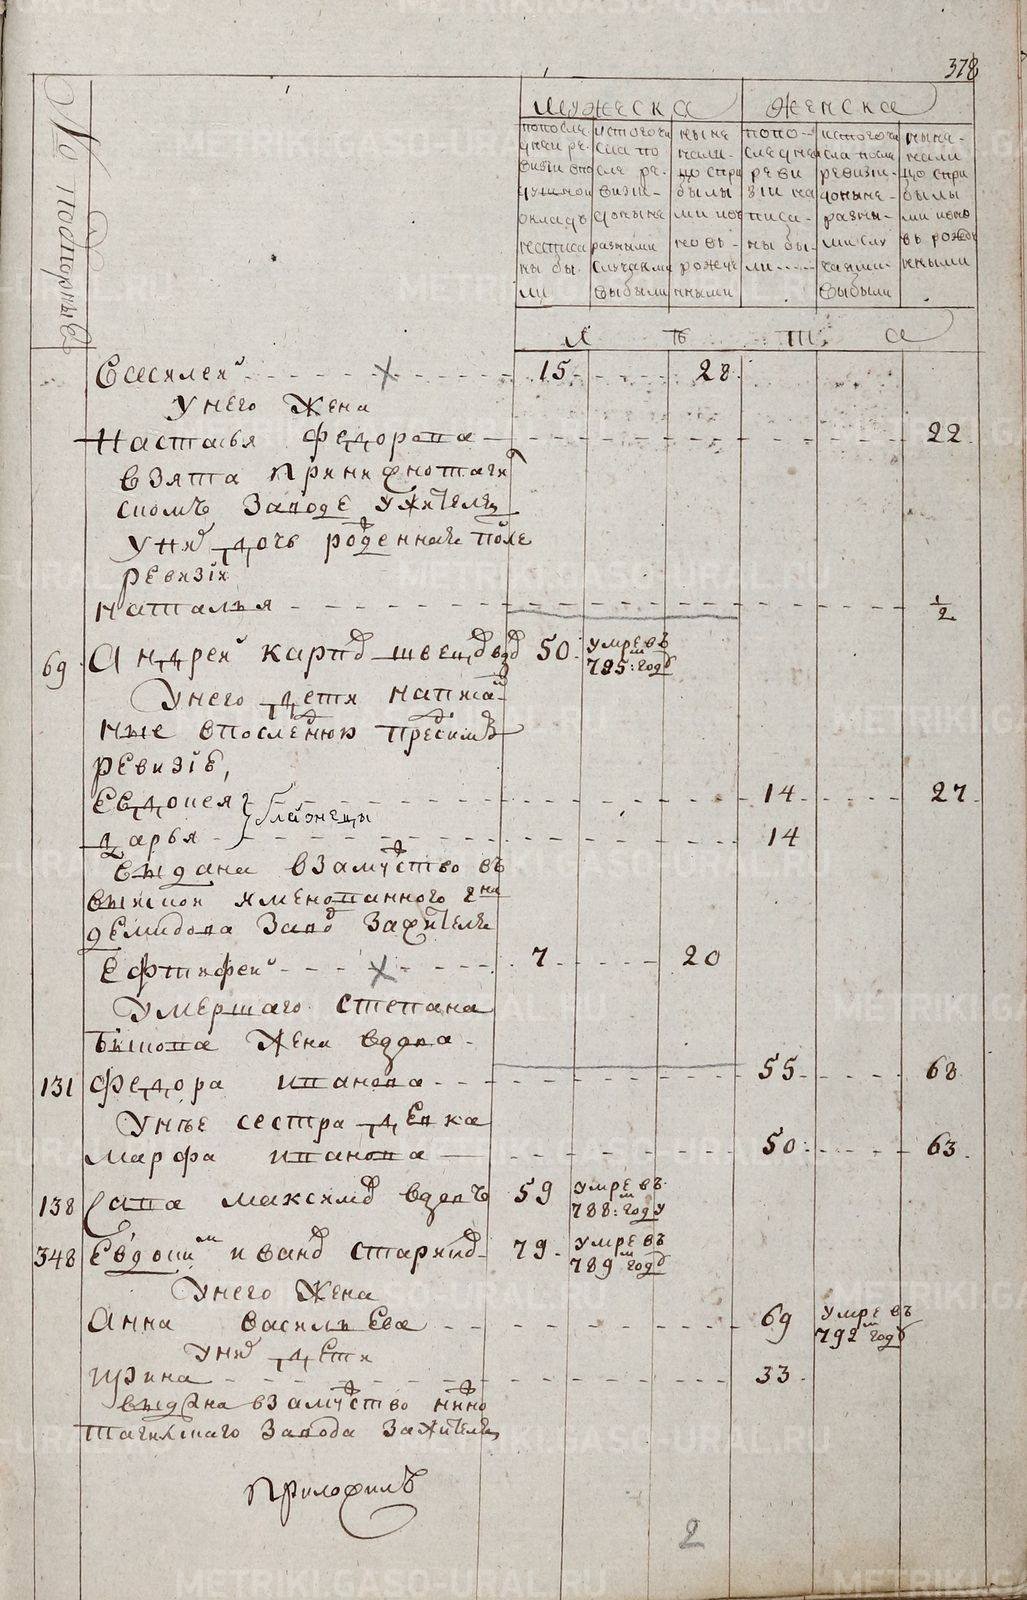 378
№ подворные
мужеска
женска
попосле
дней ре-
визии впо
душной
окладъ
написа
ны бы
ли
истогочи
сла по
сле ре-
визии-
доныне
разными
случаями
выбыли
ныне
нали-
цо спри
былы
ми ино
во въ-
рожде
нными
попо-
следней
реви
зіи на
писа-
ны бы-
ли
истогочи
сла после
ревизи-
доныне-
разны-
ми слу
чаями-
выбыли
ныне-
нали
цо спри
былы
ми ино
въ рожде
нными
л ѣ т а
Евсевлей 15 28
Унего Жена
Настасья Федорова 22
взята Принижнотаги
скомъ Заводе ужителя
Унихъ дочь рожденная после
ревизіи
Наталья 1/2
69 Андрей карпов швецов вдов 50 умре въ
785м: году
Унего дети написа-
нные впоследнюю пред симъ
ревизіе,
Евдокея 14 27
близнецы
Дарья 14
выдана взамужство въ
вышеимянованного гна
Демидова Завод Зажителя
Ефтифей 7 20
Умершаго степана
быкова Жена вдова
131 Федора иванова 55 68
Унее сестра девка
Марфа иванова 50 63
138 Сава максимов вдовъ 59 умре въ
788м: году
348 Евдоким иванов стариков 79 умре въ
789м году
Унего Жена
Анна Васильева 69 умре въ
792м году
Унихъ дети
Ирина 33
выдана взамужство нижно
тагилскаго Завода Зажителя
2